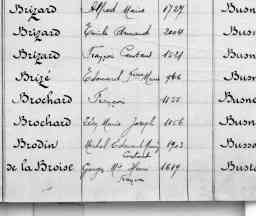 Brizard Alfred Marie 1727 Busn
Brizard Emile Armand 2004 Busn
Brizard François Constant 1521 Busn
Brizé Edouard Marie 966 Busn
Brochard François 1155 Busne
Brochard Marie Joseph 1156 Busn
Brodin Michel Edouard 1903 Busso
Constant
de la Broise Georges Mie Henri 1619 Buste